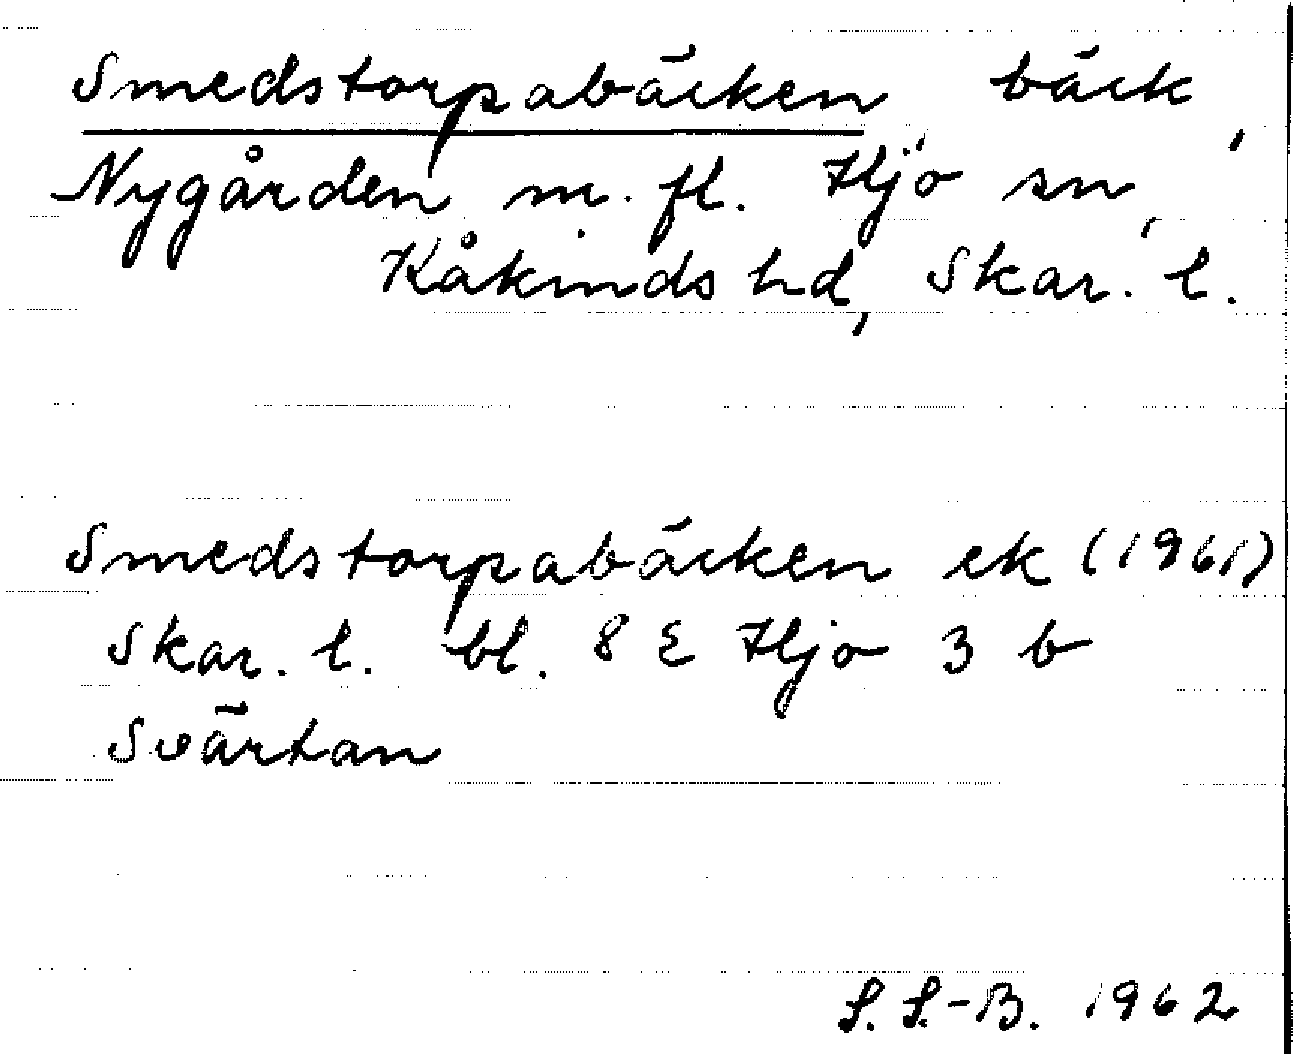 Smedstorpabäcken bäck,
Nygården m. fl. Hjo sn,
Kåkinds hd, Skar. l.
Smedstorpabäcken ek (1961)
Skar. l. bl. 8 E Hjo 3 b
Svärtan
S. S.-B. 1962